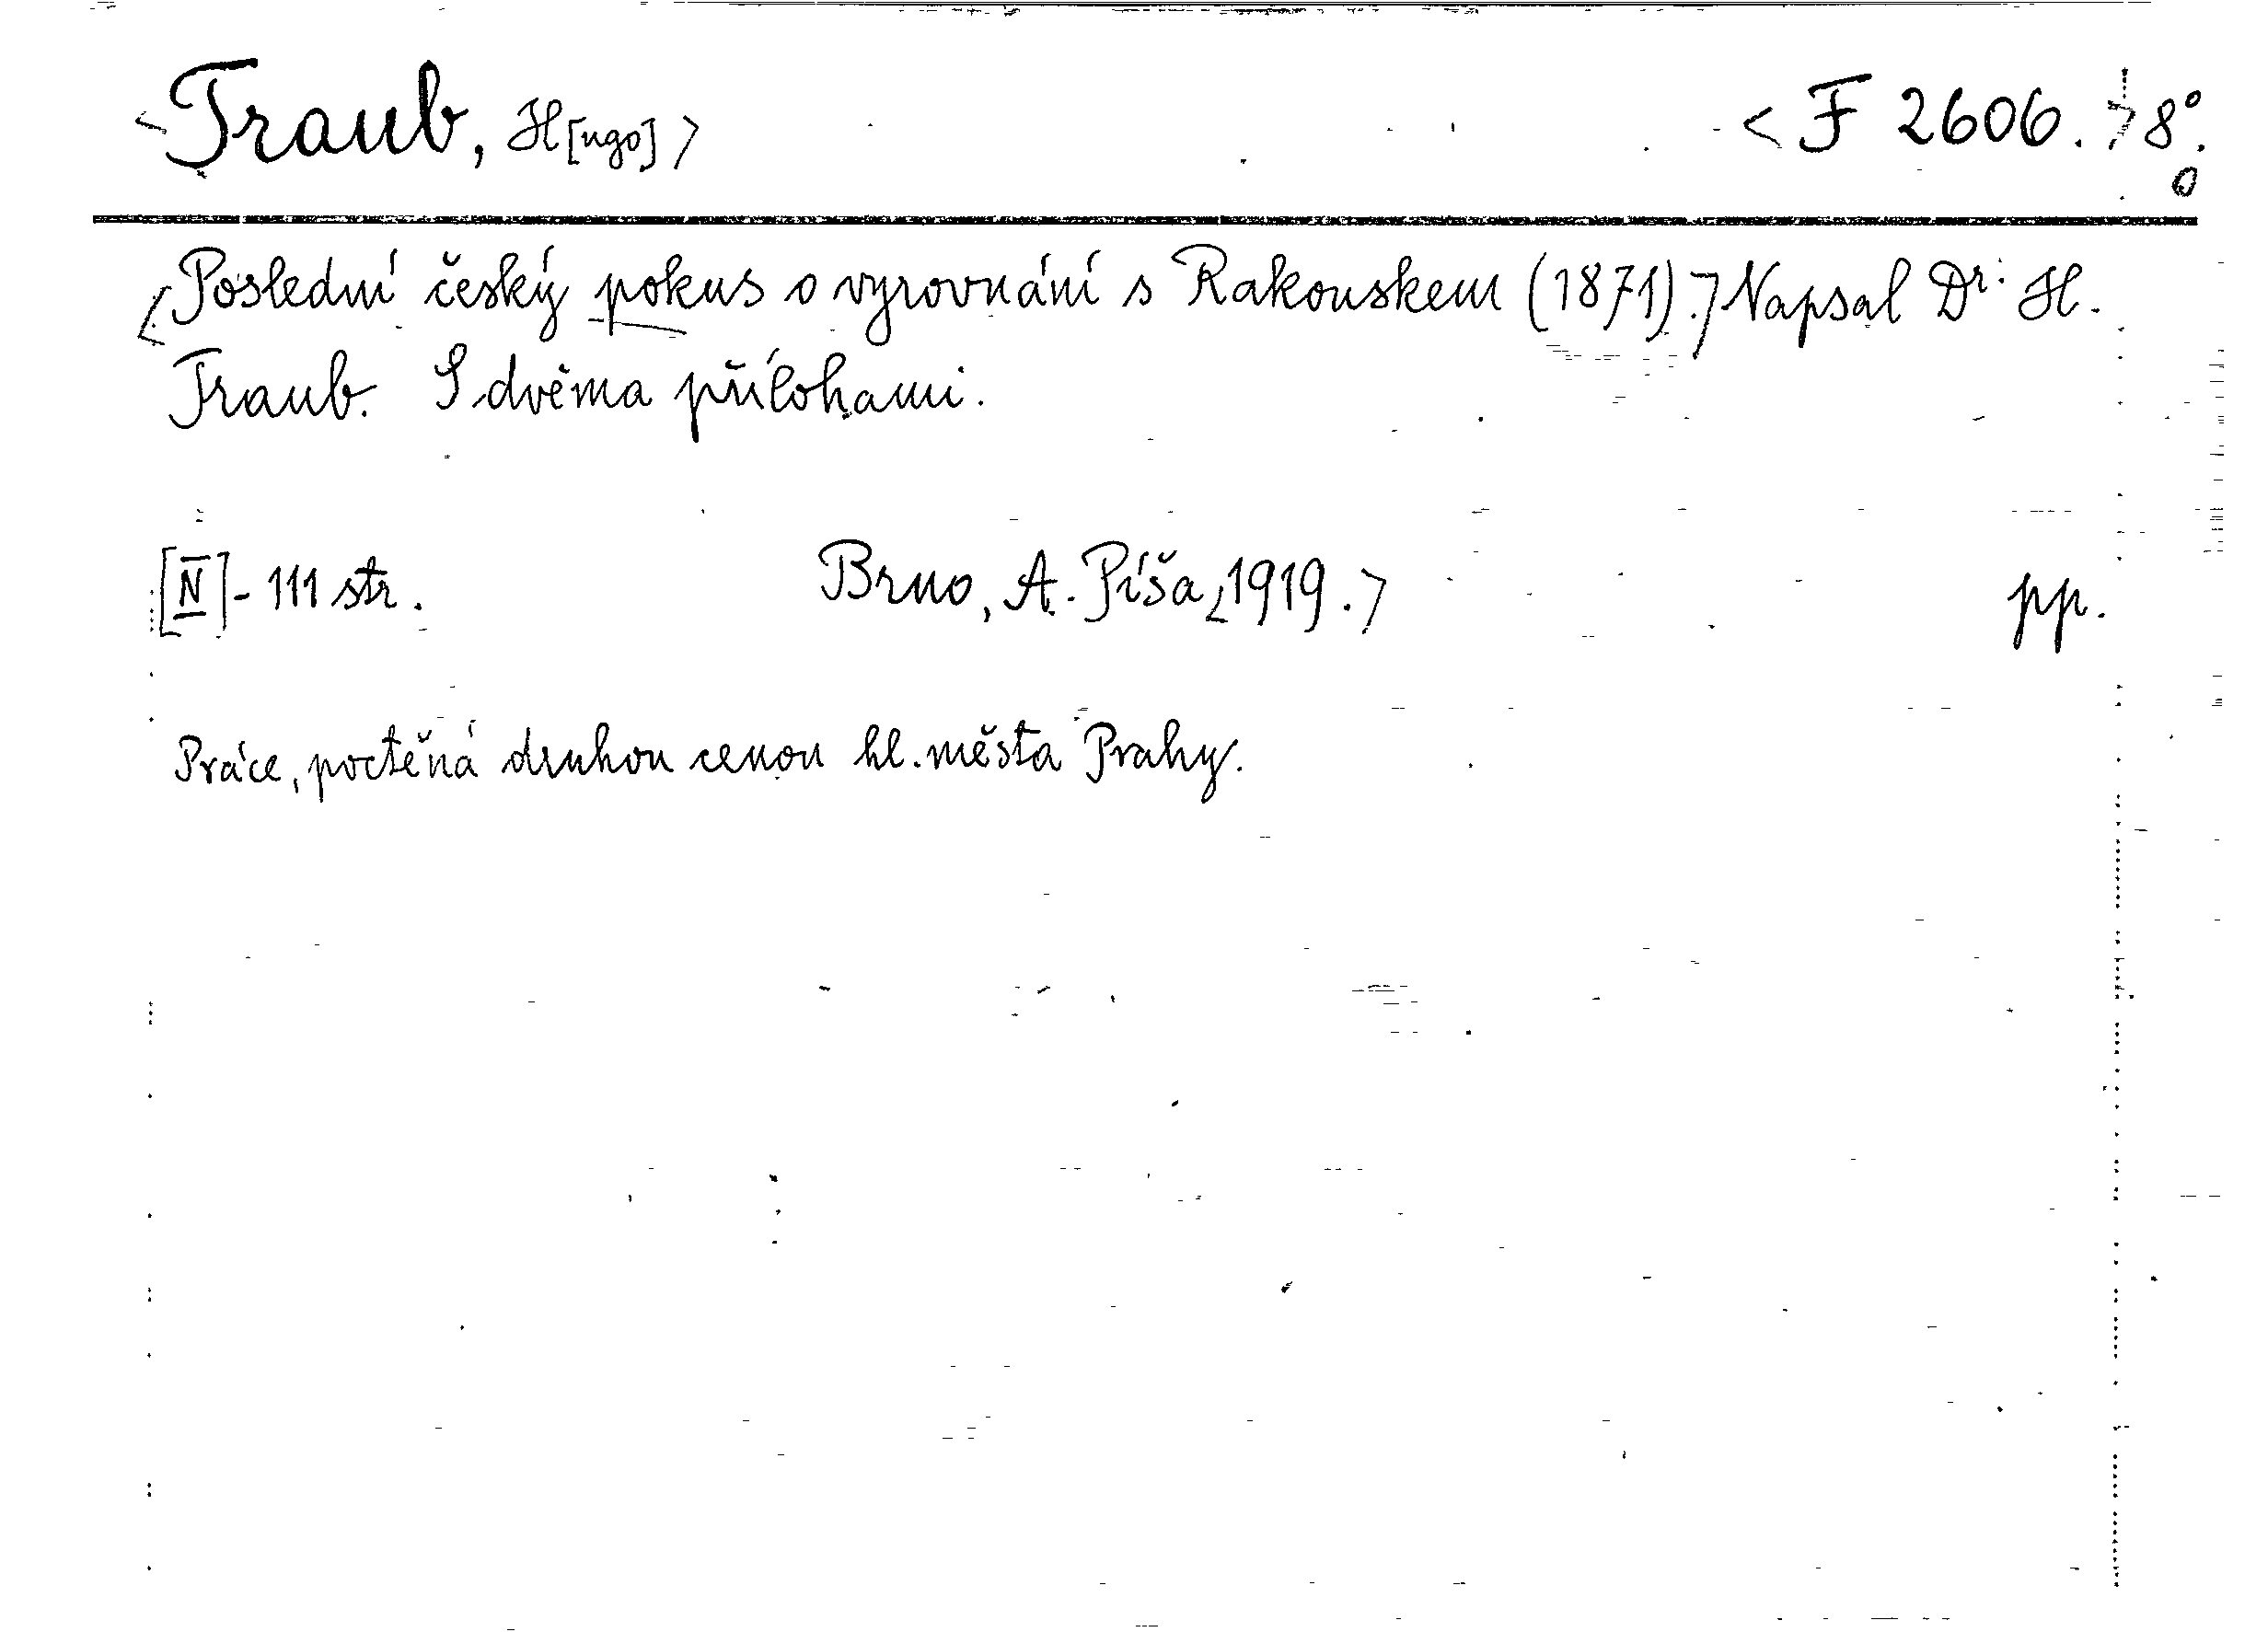 <Traub, H[ugo]> <F 2606.> 8°.
o
<Poslední český pokus o vyrovnání s Rakouskem (1871).> Napsal Dr. H.
Traub. S dvěma přílohami.
[IV]-111 str. Brno, A. Píša <1919.> pp.
Práce, poctěná druhou cenou hl. města Prahy.